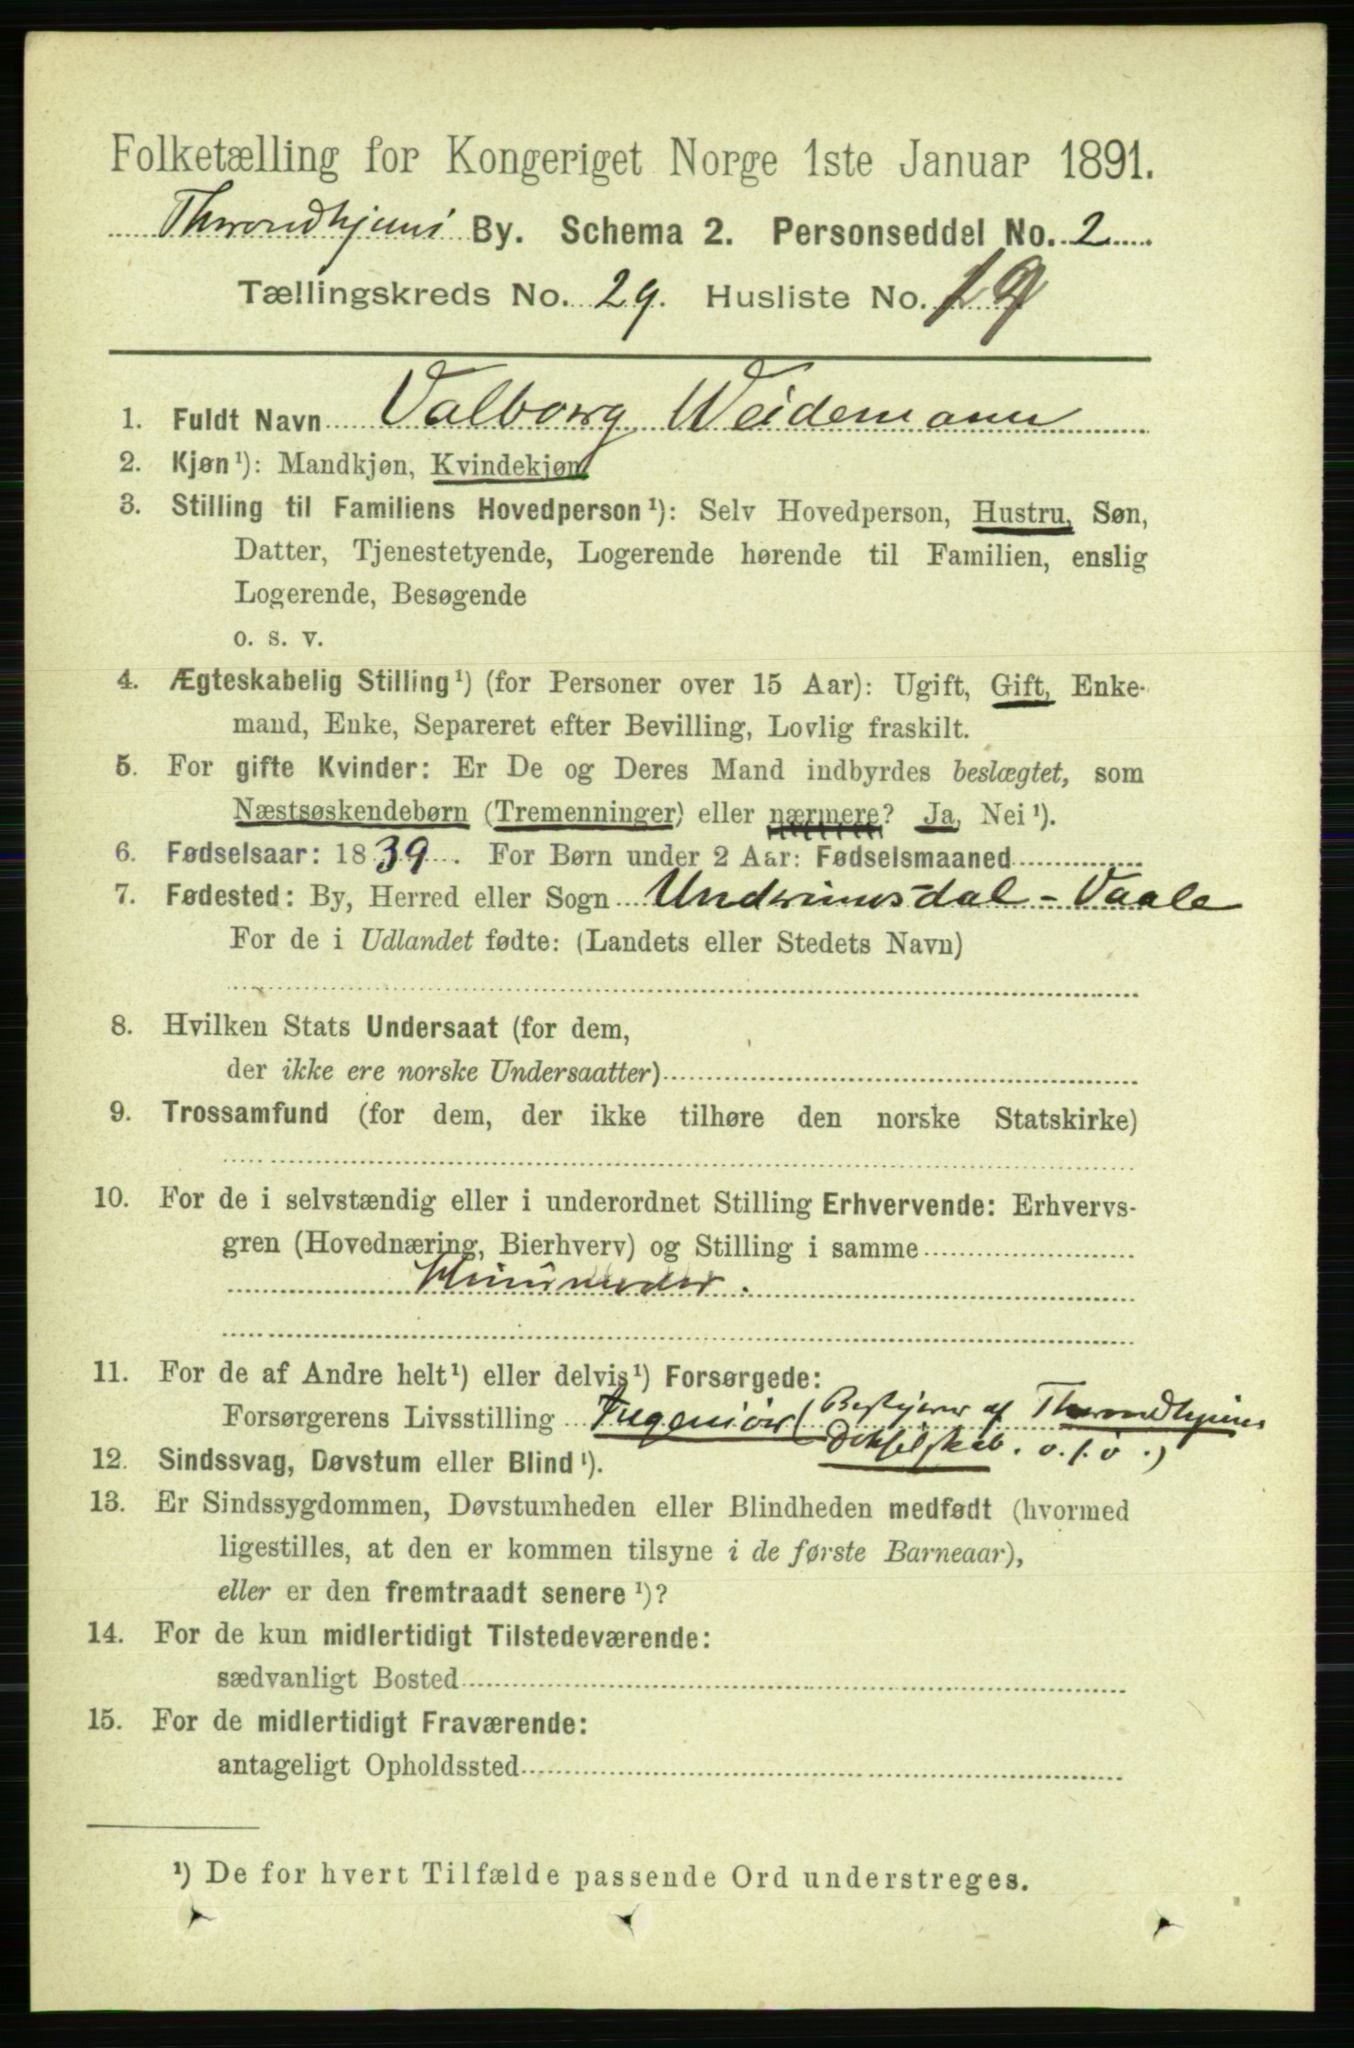 Folketælling for Kongeriget Norge 1ste Januar 1891.
Throndhjems By. Schema 2. Personseddel No. 2
Tællingskreds No. 29. Husliste No. 19
1. Fuldt Navn Valborg Weidemann
2. Kjøn¹): Mandkjøn, Kvindekjøn
3. Stilling til Familiens Hovedperson¹): Selv Hovedperson, Hustru, Søn,
Datter, Tjenestetyende, Logerende hørende til Familien, enslig
Logerende, Besøgende
o. s. v.
4. Ægteskabelig Stilling¹) (for Personer over 15 Aar): Ugift, Gift, Enke-
mand, Enke, Separeret efter Bevilling, Lovlig fraskilt.
5. For gifte Kvinder: Er De og Deres Mand indbyrdes beslægtet, som
Næstsøskendebørn (Tremenninger) eller nærmere? Ja, Nei¹).
6. Fødselsaar: 1839. For Børn under 2 Aar: Fødselsmaaned
7. Fødested: By, Herred eller Sogn Undrumsdal - Vaale
For de i Udlandet fødte: (Landets eller Stedets Navn)
8. Hvilken Stats Undersaat (for dem,
der ikke ere norske Undersaatter)
9. Trossamfund (for dem, der ikke tilhøre den norske Statskirke)
10. For de i selvstændig eller i underordnet Stilling Erhvervende: Erhvervs-
gren (Hovednæring, Bierhverv) og Stilling i samme
Husmoder.
11. For de af Andre helt¹) eller delvis¹) Forsørgede:
Forsørgerens Livsstilling Ingeniør (Bestyrer af Throndhjems
Dokselskab. o. s. v.)
12. Sindssvag, Døvstum eller Blind¹).
13. Er Sindssygdommen, Døvstumheden eller Blindheden medfødt (hvormed
ligestilles, at den er kommen tilsyne i de første Barneaar),
eller er den fremtraadt senere¹)?
14. For de kun midlertidigt Tilstedeværende:
sædvanligt Bosted
15. For de midlertidigt Fraværende:
antageligt Opholdssted
¹) De for hvert Tilfælde passende Ord understreges.